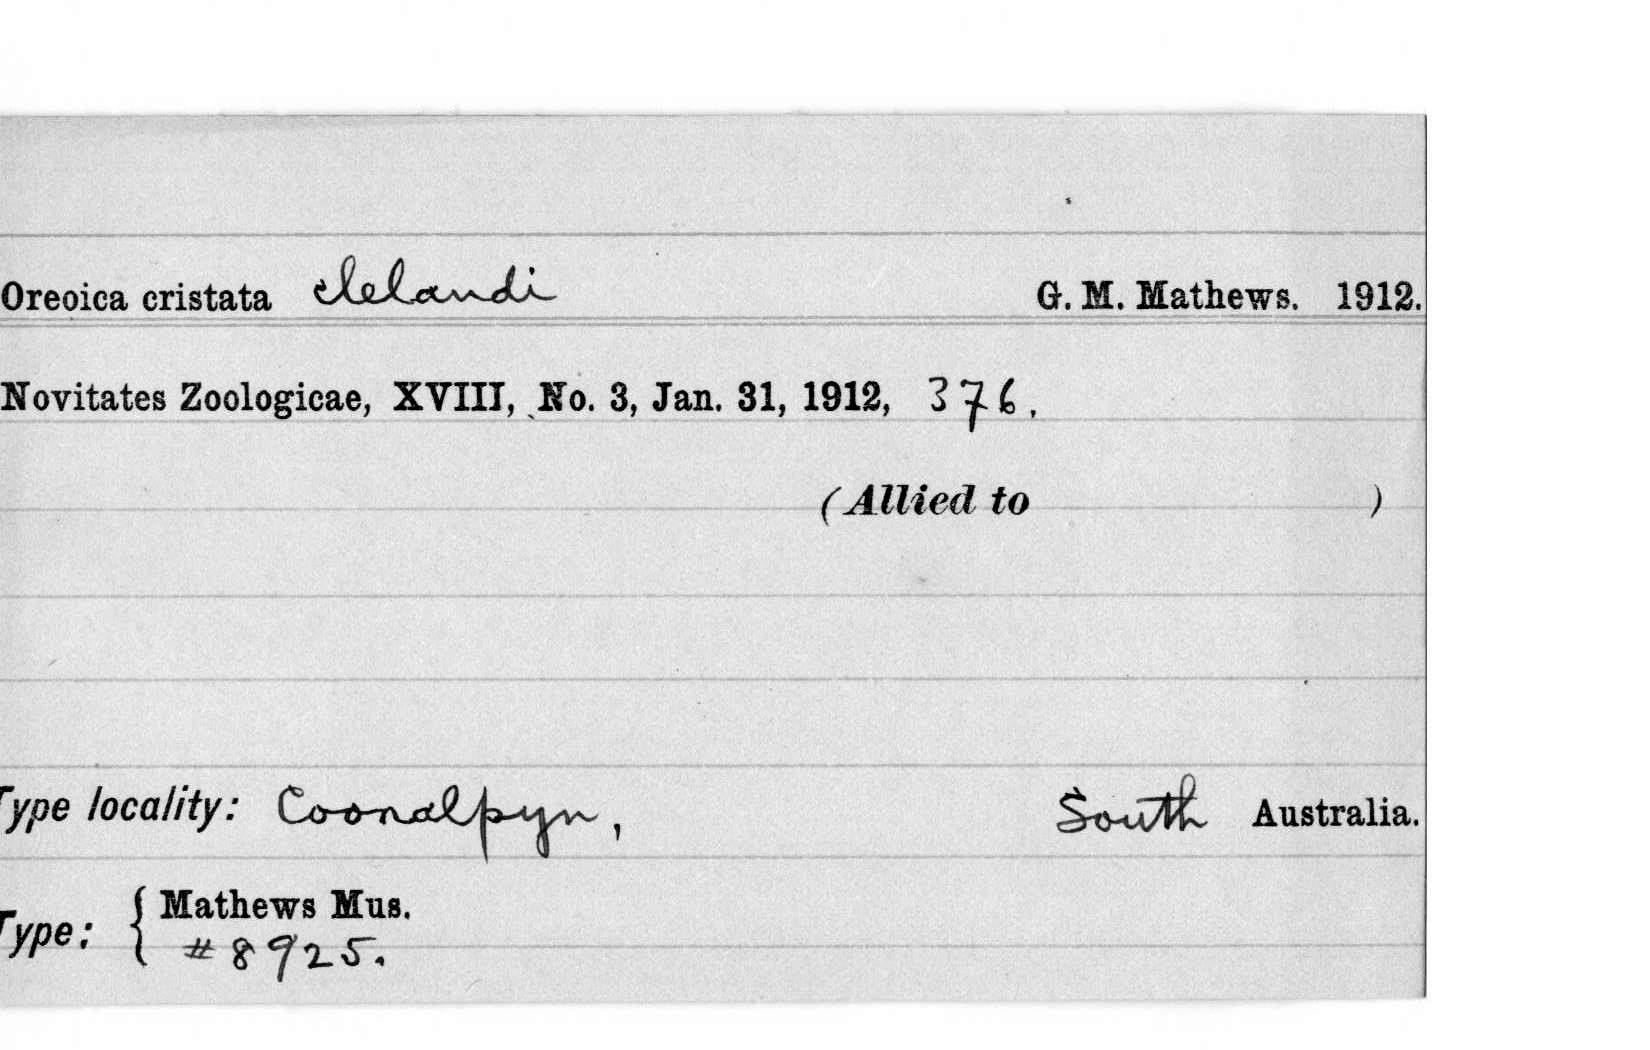 Oreoica cristata clelandi G. M. Mathews. 1912.
Novitates Zoologicae, XVIII, No. 3, Jan. 31, 1912, 376.
(Allied to )
Type locality: Coonalpyn, South Australia.
Type: { Mathews Mus.
#8925.